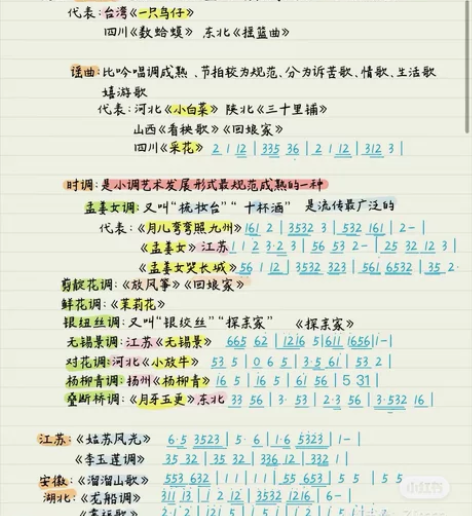 代表：台湾《一只鸟仔》
四川《数蛤蟆》 东北《摇篮曲》
谣曲：比吟唱调成熟、节拍较为规范、分为诉苦歌、情歌、生活歌
嬉游歌
代表：河北《小白菜》 陕北《三十里铺》
山西《看秧歌》《回娘家》
四川《采花》 2 1 12 | 335 36 | 2 1 12 | 312 3 |
时调：是小调艺术发展形式最规范成熟的一种
孟姜女调：又叫“梳妆台”“十杯酒” 是流传最广泛的
代表：《月儿弯弯照九州》 161 2 | 3532 3 | 532 161 | 2 - |
《孟姜女》江苏 1 1 2 3·2 3 | 56 53 2 - | 25 32 12 3 |
《孟姜女哭长城》 56 1 12 | 3532 323 | 561 6532 | 35 2·
剪靛花调：《放风筝》《回娘家》
鲜花调：《茉莉花》
银纽丝调：又叫“银绞丝”“探亲家” 《探亲家》
无锡景调：江苏《无锡景》 665 62 | 1216 5 | 611 1656 | 1 - |
对花调：河北《小放牛》 53 5 | 0 6 5 | 3·5 61 | 53 2 |
杨柳青调：扬州《杨柳青》 16 5 | 16 5 | 61 56 | 5 31 |
垒断桥调：《月牙五更》东北 33 56 | 3· 53 | 2·3 56 | 3·532 16 |
江苏：《姑苏风光》 6·5 3523 | 5· 6 | 1·6 5323 | 1 - |
《李玉莲调》 35 32 | 35 32 | 336 12 | 332 1 |
安徽：《溜溜山歌》 553 632 | 1 1 | 1 1 | 55 653 | 5 5 | 5 5
湖北：《龙船调》 311 13 | 1 2 | 3532 1216 | 6 - |
小红书